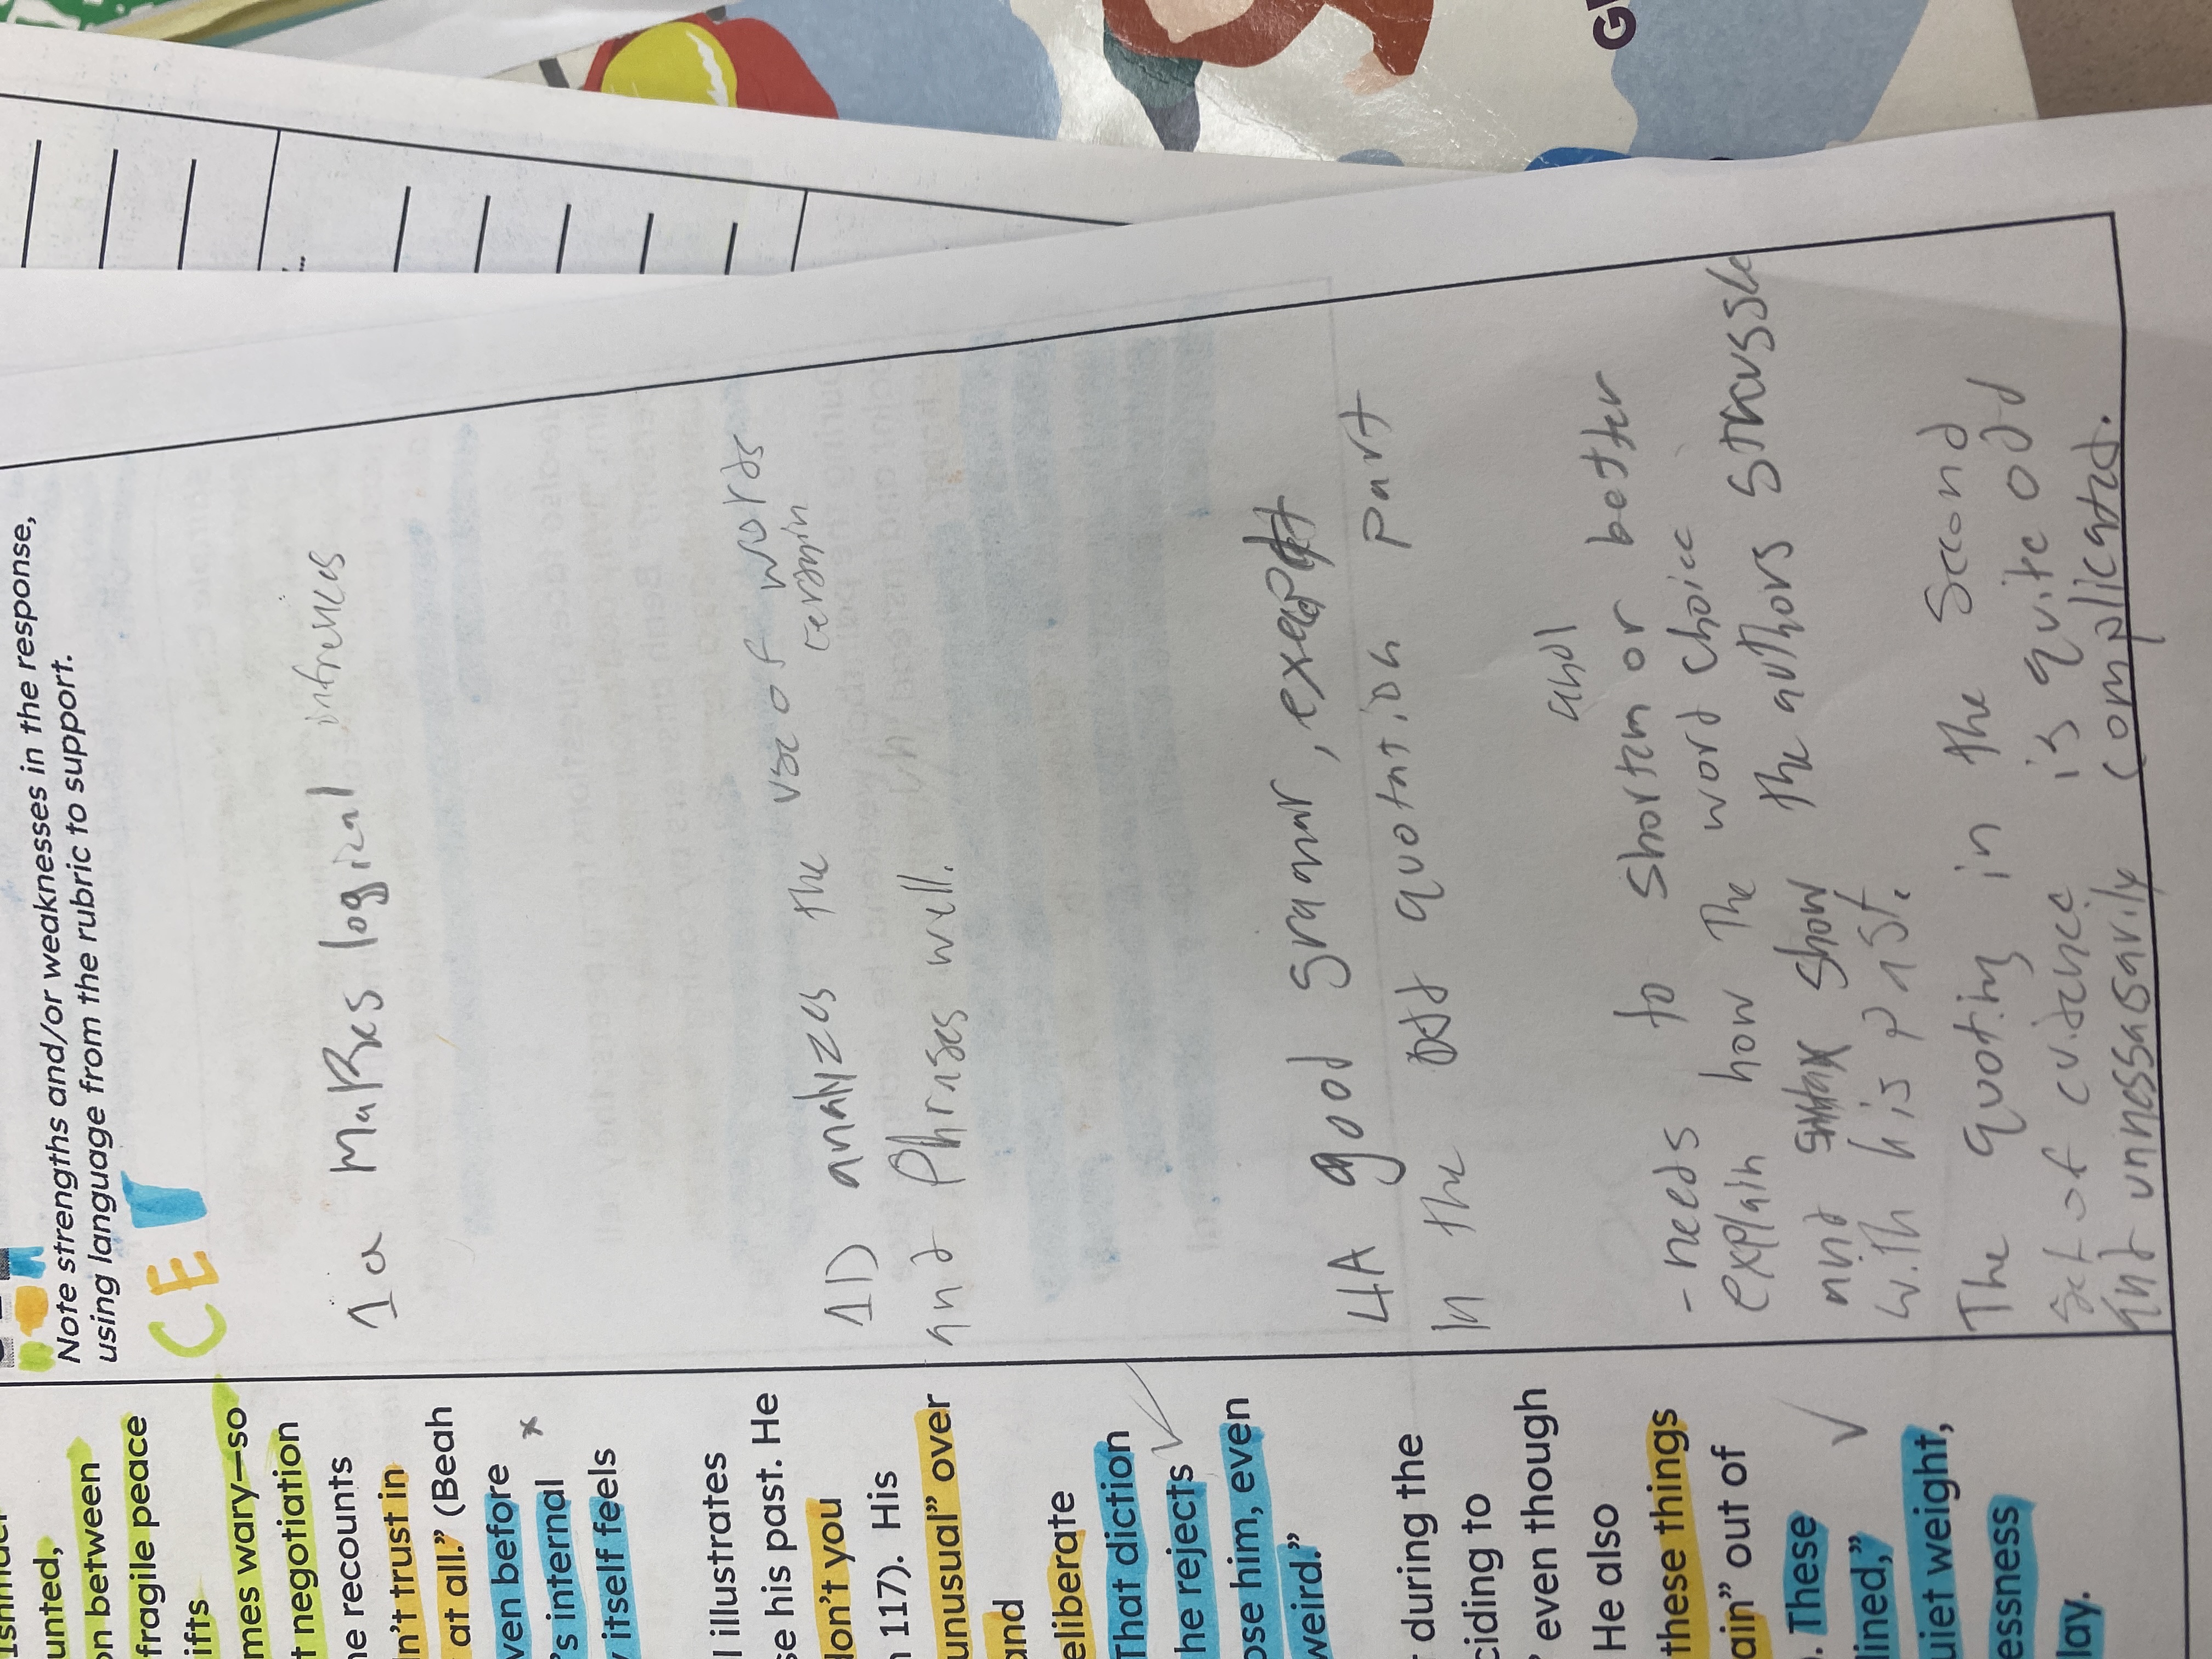 Note strengths and/or weaknesses in the response,
using language from the rubric to support.
C E T
1a makes logical infrences
1D analyzes the use of words
cerain
and Phrases well.
4A good gramar, except
In the odd quotation part
and
- needs to shorten or better
explain how The word choice
and syntax show the authors struggle
with his past.
The quoting in the second
set of evidence is quite odd
and unnessasarily complicated.
unted,
on between
fragile peace
ifts
mes wary—so
t negotiation
he recounts
n't trust in
at all." (Beah
ven before
's internal x
y itself feels
l illustrates
se his past. He
don't you
n 117). His
unusual" over
and
eliberate
That diction
he rejects
ose him, even
weird."
r during the
ciding to
" even though
He also
these things
ain" out of
). These
lined,"
uiet weight,
essness
lay.
G